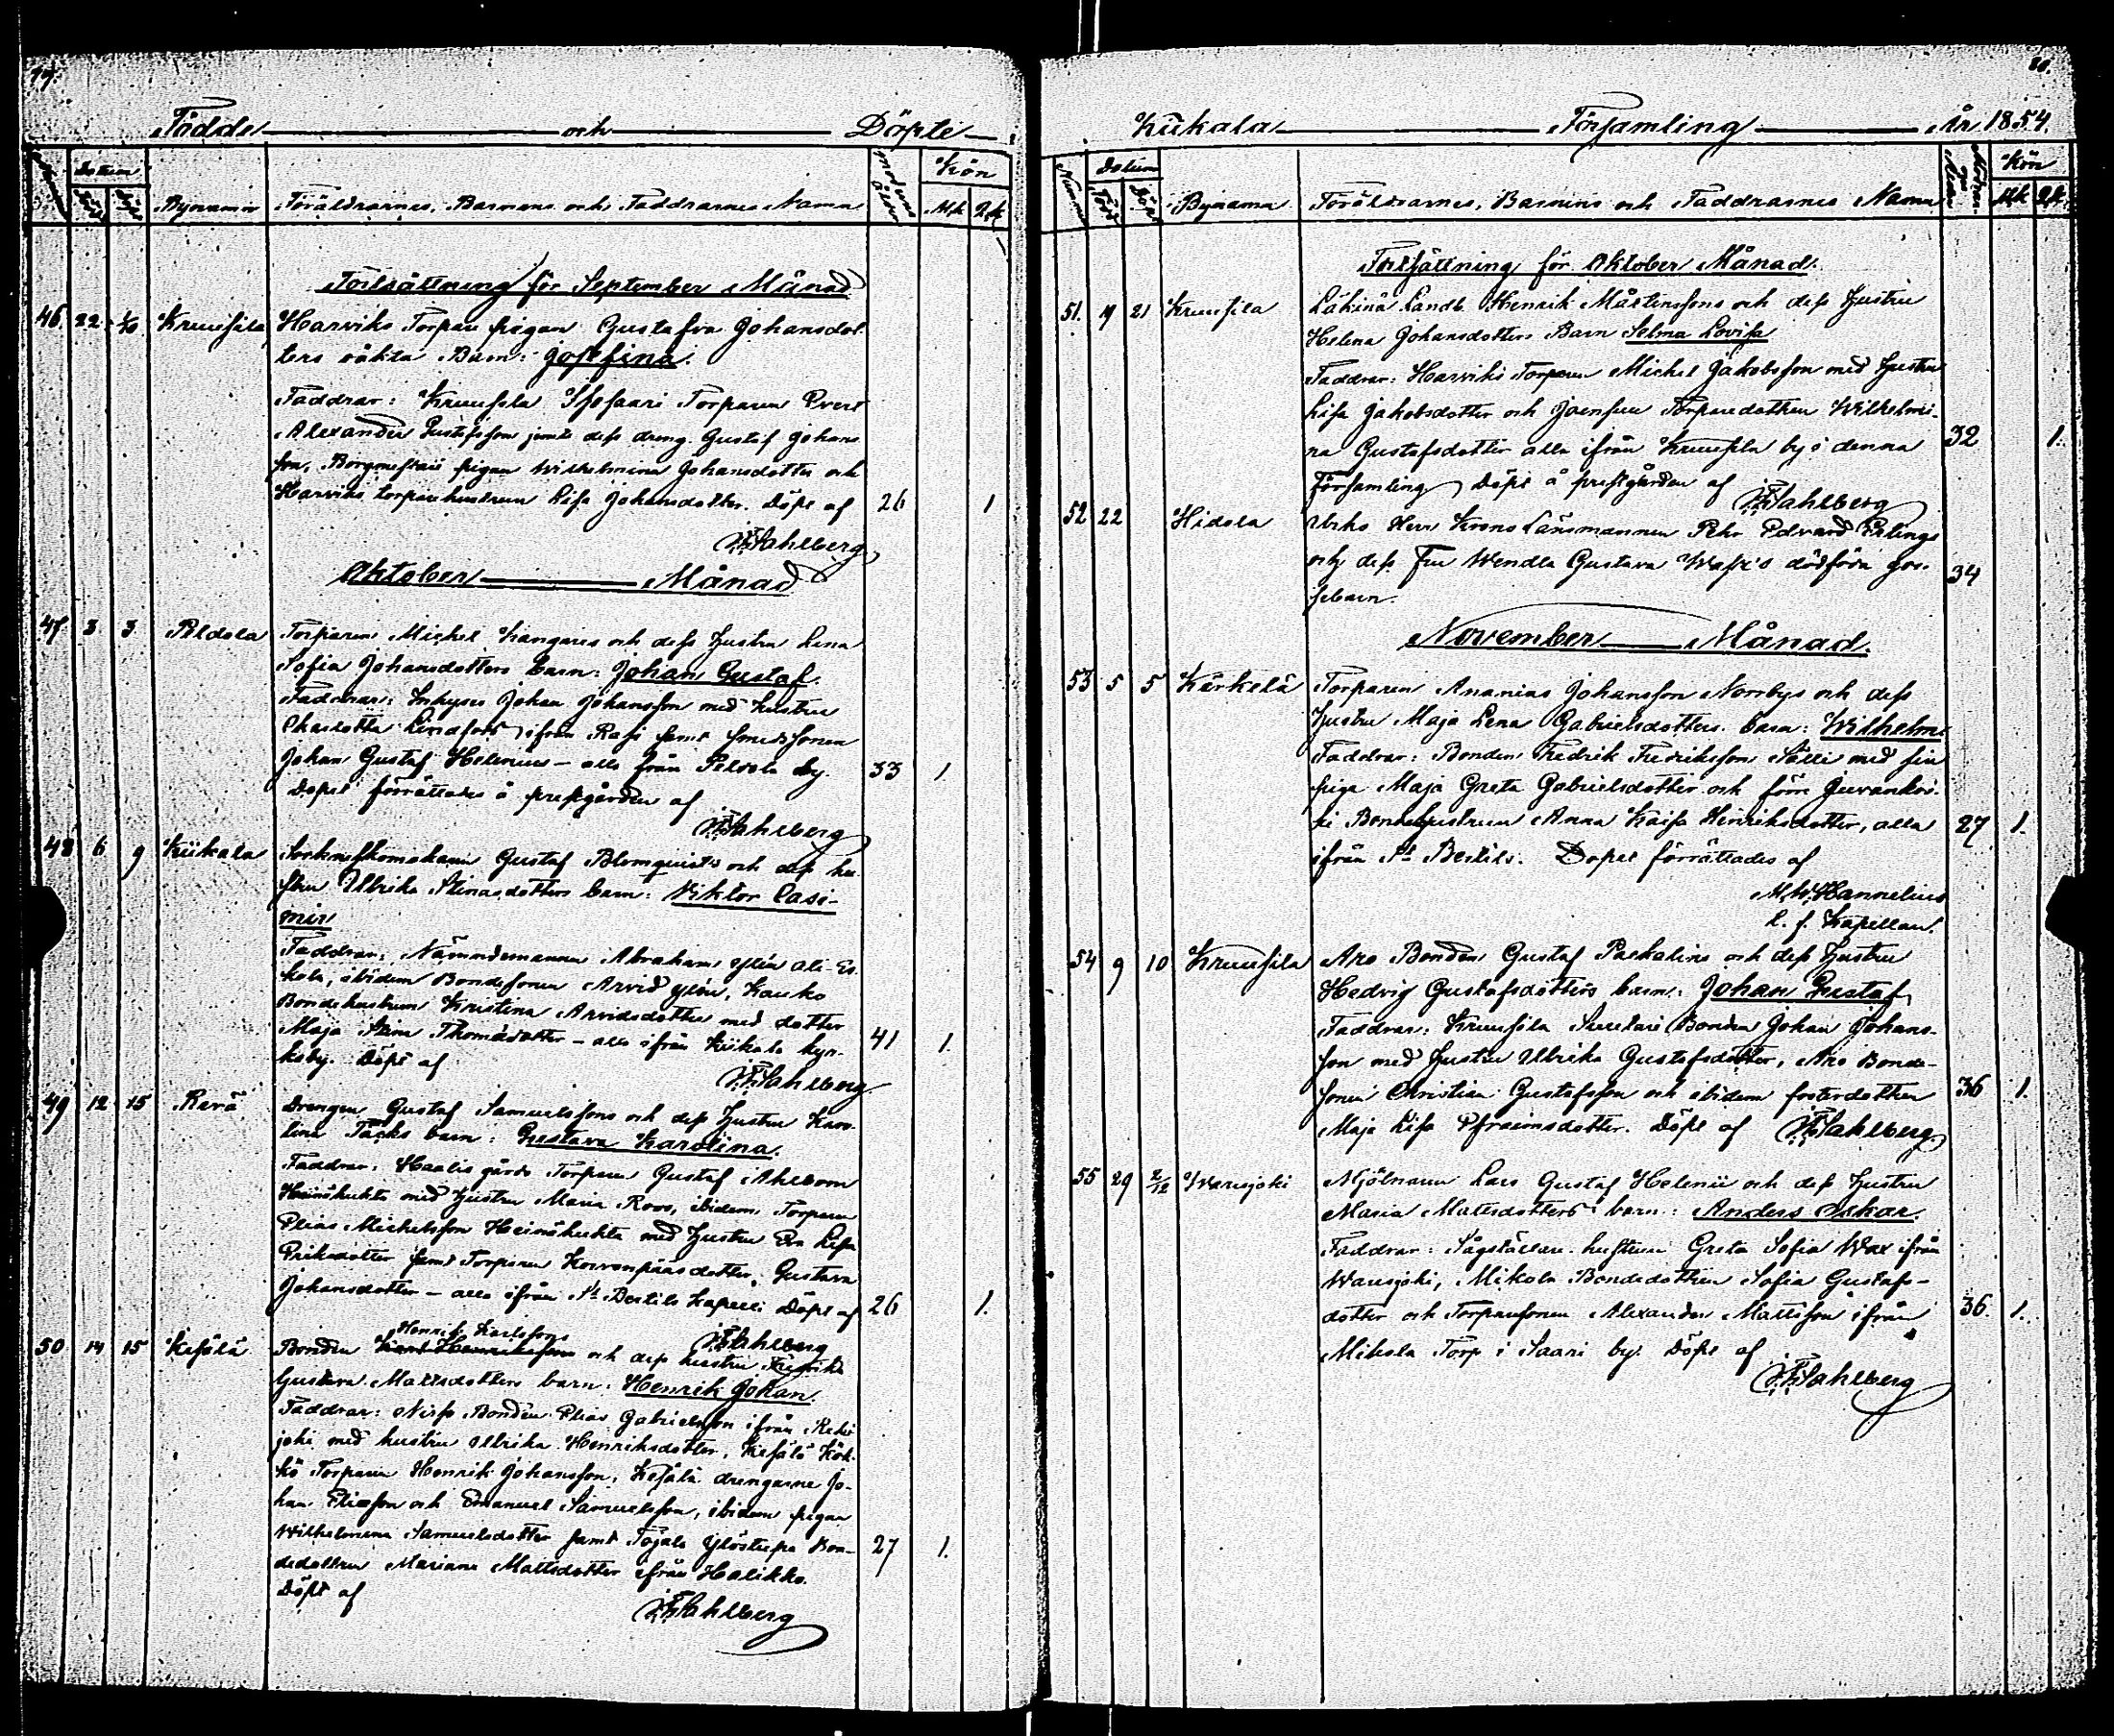 19.
Födde och Döpte
Datum
Kön
Född
Döpt
Bynamn
Föräldrarnes, Barnens och Faddrarnes Namn
Moderns Ålder
Mk
Qk
Fortsättning för September Månad
46. 22. 1/10 Kruusila Harviks Torpare pigan Gustafva Johansdot-
ters oäkta Barn: Josefina.
Faddrar: Kruusila Isosaari Torparen Evert
Alexander Gustafsson jemte dess dreng Gustaf Johans
son, pigan Wilhelmina Johansdotter och
Harviks torparehustrun Lisa Johansdotter. Döpt af 26 1
Wahlberg
Oktober Månad
47 3. 3. Peldola Torparen Michel Kangares och dess Hustru Lena
Sofia Johansdotters barn: Johan Gustaf.
Faddrar: Inhyses Johan Johansson med hustru
Charlotta Lindfors ifrån Rasi samt smedssonen
Johan Gustaf Helenius – alla från Peldola by. 33 1.
Dopet förrättades å prestgården af
Wahlberg
48 6 9 Kiikala Gustaf Blomquists och dess hu-
stru Ulrika Stinasdotters barn: Viktor Casi-
mir
Faddrar: Nämndemannen Abraham Ylén Ali-Es-
kola, ibidem Bondesonen Arvid Ylén, Kauko
Bondehustrun Kristina Arvidsdotter med dotter
Maja Stina Thomasdotter – alla ifrån Kiikala kyr- 41 1.
koby. Döpt af
Wahlberg
49 12 15 Rerä Drengen Gustaf Samuelssons och dess Hustru Karo-
lina Täcks barn: Gustava Karolina.
Faddrar: Haalis gårds Torparen Gustaf Ahlbom
Heinäkukta med Hustru Maria Roos, ibidem Torparen
Elias Michelsson Heinäkukta med Hustru Eva Lisa
Eriksdotter samt Torparen Korvenpääs dotter, Gustava
Johansdotter – alla ifrån St. Bertils Kapell. Döpt af 26 1.
Wahlberg
50 14 15 Kesälä Bonden Henrik Karlssons och dess hustru Fredrika
Gustava Mattsdotters barn: Henrik Johan.
Faddrar: Bonden Elias Gabrielsson ifrån Reki-
joki med hustru Ulrika Henriksdotter, Kesälä Kök-
kö Torparen Henrik Johansson, Kesälä drengarne Jo-
han Eliasson och Emanuel Samuelsson, ibidem pigan
Wilhelmina Samuelsdotter samt Töjala Ylöstupa Bon- 27 1.
dedottren Mariana Mattsdotter ifrån Halikko.
Döpt af
Wahlberg
20.
Kiikala Församling År 1854.
Nummer
Datum
Kön
Född
Döpt
Bynamn
Föräldrarnes, Barnens och Faddrarnes Namn
Mk
Qk
Fortsättning för Oktober Månad.
51. 21 Kruusila Läkinä Landb. Henrik Mårtenssons och dess Hustru
Helena Johansdotters Barn Selma Lovisa
Faddrar: Harviks Torparen Michel Jakobsson med Hustru
Lisa Jakobsdotter och Joensuu Torparedottren Wilhelmi-
na Gustafsdotter alla ifrån Kruusila by i denna 32 1.
Församling Döpt å prestgården af Wahlberg
52 22 Hidola Herr Krono Länsmannen Pehr Edvard
och dess Fru Wendla Gustava dödföda gos- 34
sebarn.
November Månad.
53 5 5 Kärkelä Torparen Ananias Johansson Norrbys och dess
Hustru Maja Lena Gabrielsdotters barn: Wilhelm.
Faddrar: Bonden Fredrik Fredriksson Sälli med sin
piga Maja Greta Gabrielsdotter och förre Juvankos-
ki Bondehustrun Anna Kaisa Henriksdotter, alla 27 1.
ifrån St. Bertils. Dopet förrättades af
M. W. Hannelius
t. f. Kapellan.
54 9 10 Kruusila Aro Bonden Gustaf Paekalins och dess Hustru
Hedvig Gustafsdotters barn: Johan Gustaf
Faddrar: Kruusila Suutari Bonden Johan Johans-
son med Hustru Ulrika Gustafsdotter, Aro Bonde-
sonen Christian Gustafsson och ibidem fosterdottren 36 1.
Maja Lisa Efraimsdotter. Döpt af Wahlberg
55 29 2/12 Warisjoki Mjölnaren Lars Gustaf Helenii och dess Hustru
Maria Mattsdotters barn: Anders Oskar.
Faddrar: Sågställare hustrun Greta Sofia Wax ifrån
Warisjoki, Mikola Bondedottren Sofia Gustafs-
dotter och Torparesonen Alexander Mattsson ifrån 36. 1.
Mikola Torp i Saari by. Döpt af
Wahlberg